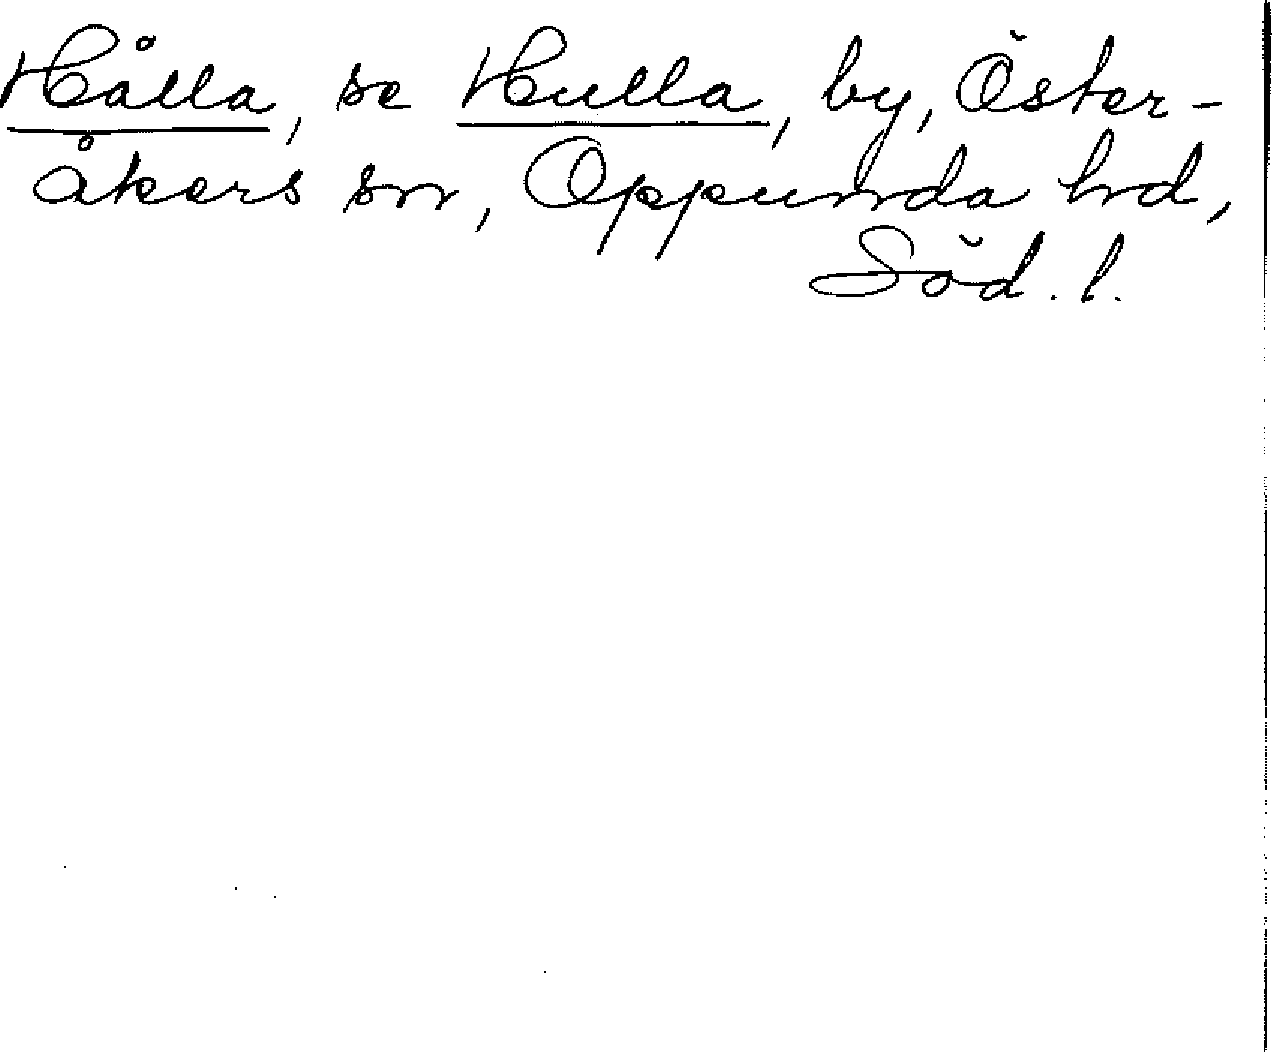 Hålla, se Hulla, by, Öster-
åkers sn, Oppunda hd,
Söd. l.